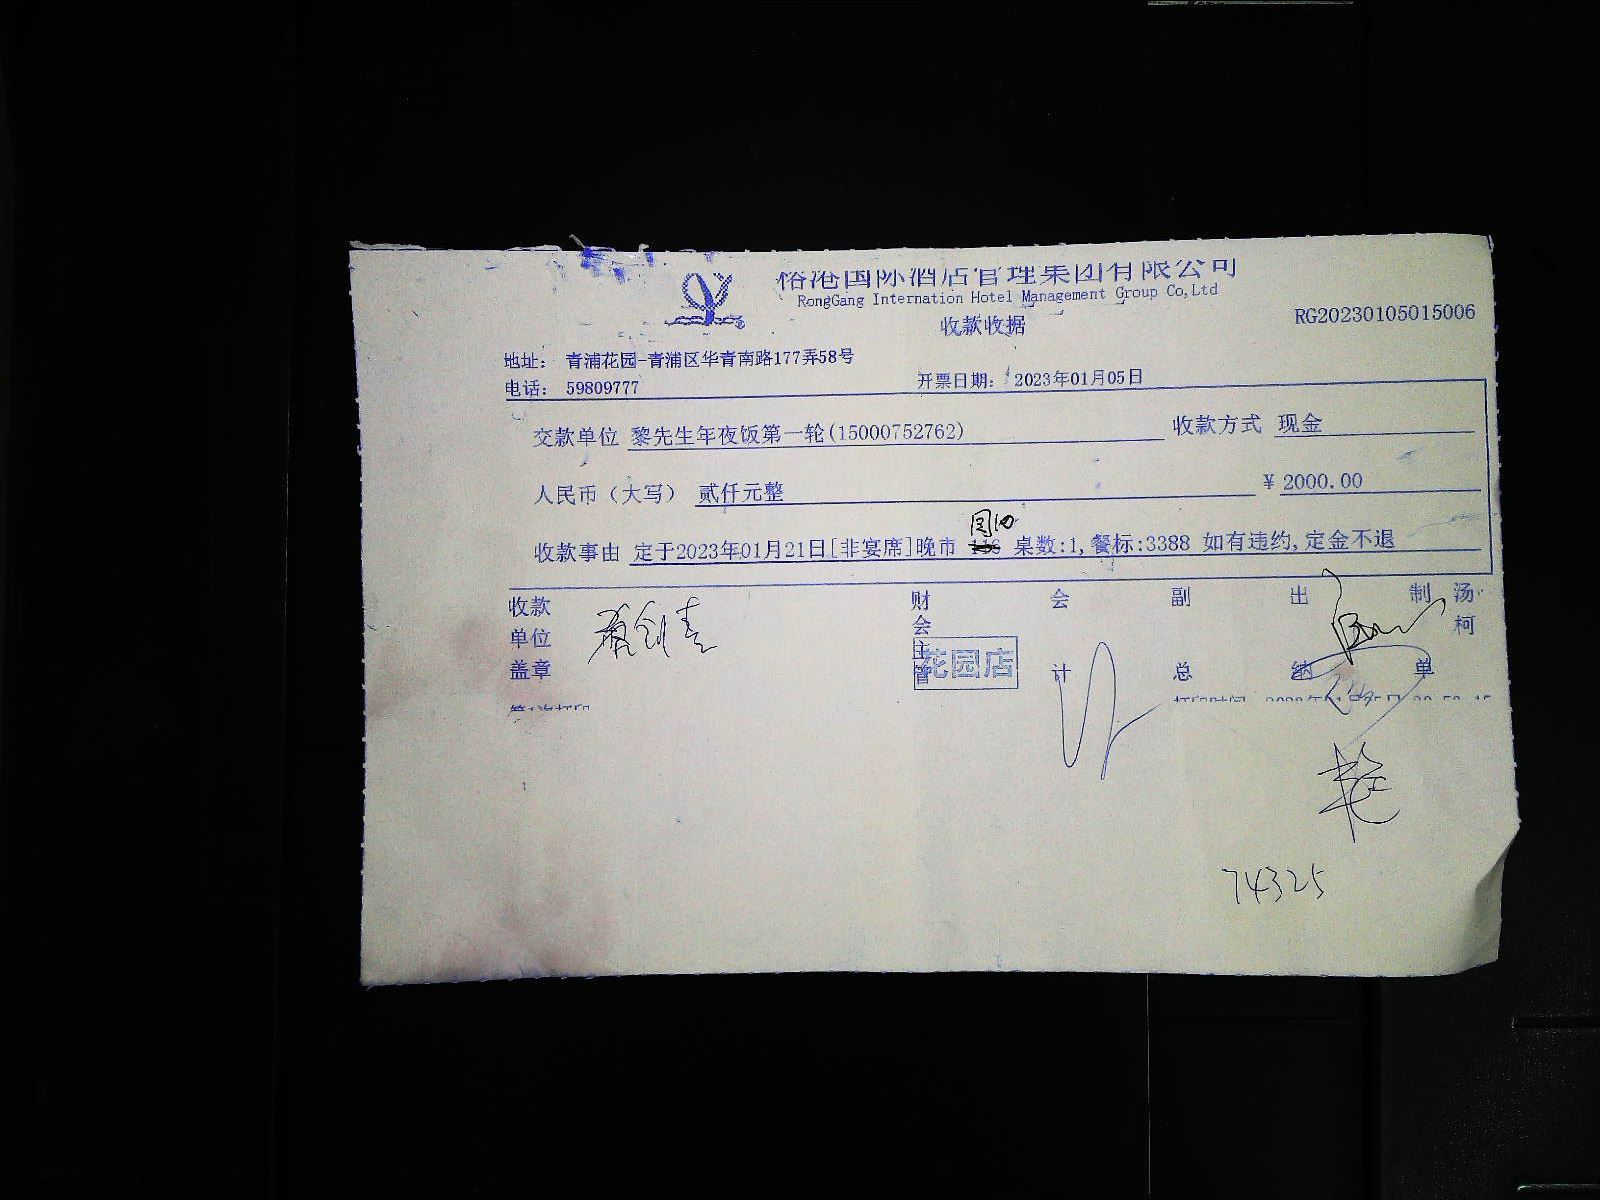 裕港国际酒店管理集团有限公司
RongGang Internation Hotel Management Group Co,Ltd
收款收据
RG20230105015006
地址: 青浦花园-青浦区华青南路177弄58号
电话: 59809777 开票日期: 2023年01月05日
交款单位 黎先生年夜饭第一轮(15000752762) 收款方式 现金
人民币（大写） 贰仟元整 ¥ 2000.00
收款事由 定于2023年01月21日[非宴席]晚市 桌数:1,餐标:3388 如有违约,定金不退
收款单位盖章 财会主管 会计 副总 出纳 制单 汤柯
花园店
第1次打印 打印时间
74325